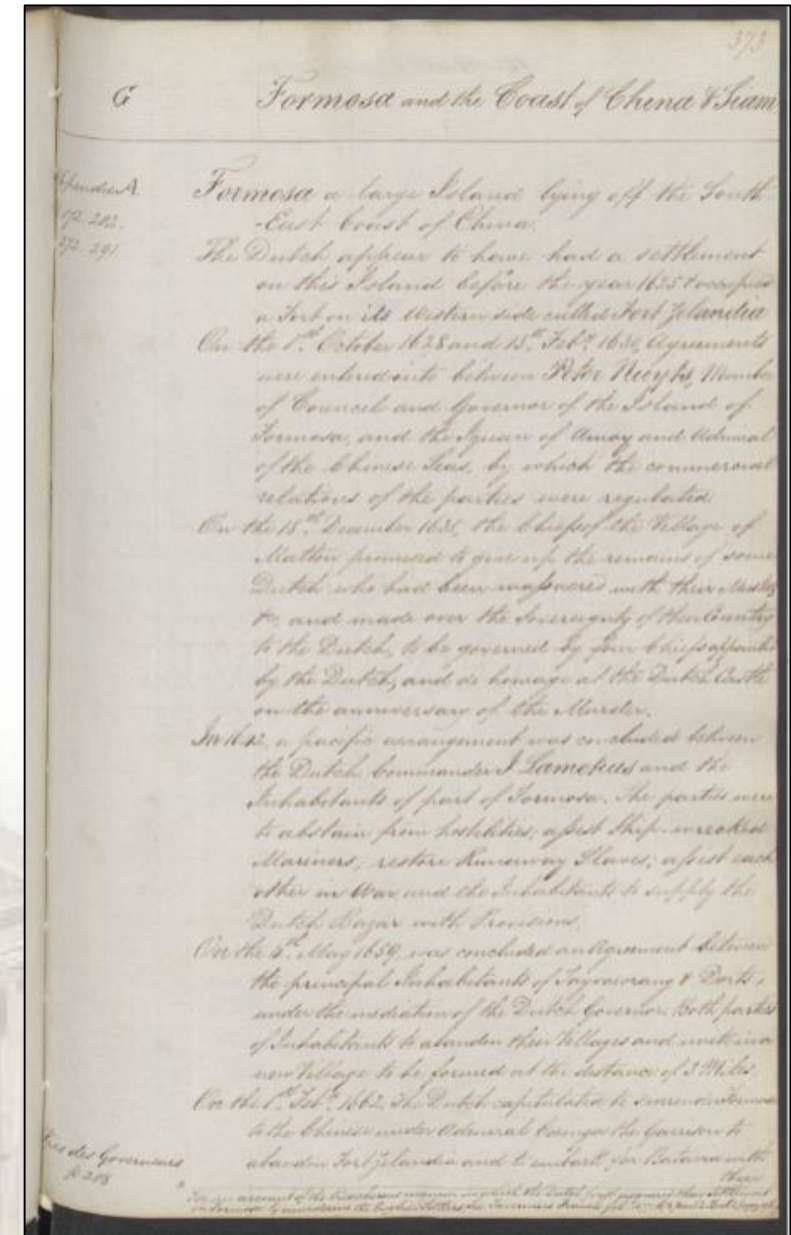 373
G Formosa and the Coast of China & Siam
Appendix A
272. 291
Formosa a large Island lying off the South
-East Coast of China.
The Dutch appear to have had a settlement
on this Island before the year 1625 & occupied
a Fort on its Western side called Fort Zelandia
On the 1st October 1628 and 13th Feby 1630, Agreements
were entered into between Peter Nuyts, Member
of Council and Governor of the Island of
Formosa, and the Iquan of Amoy and Admiral
of the Chinese Seas, by which the commercial
relations of the parties were regulated.
On the 18th December 1635, the Chiefs of the Village of
Mattou promised to give up the remains of some
Dutch who had been massacred with their
&c, and made over the Sovereignty of their Country
to the Dutch, to be governed by four Chiefs appointed
by the Dutch, and do homage at the Dutch Castle
on the anniversary of the Murder.
In 1642, a pacific arrangement was concluded between
the Dutch Commander J Lamotius and the
Inhabitants of part of Formosa. The parties were
to abstain from hostilities; assist Ship-wrecked
Mariners, restore Runaway Slaves; assist each
other in War and the Inhabitants to supply the
Dutch Bazar with Provisions.
On the May 1659, was concluded an Agreement between
the principal Inhabitants of &
under the mediation of the Dutch Governor. Both parties
of Inhabitants to abandon their Villages and unite in a
new Village to be formed at the distance of 3 Miles.
On the 1st Feby 1662. The Dutch capitulated to surrender Formosa
to the Chinese under Admiral the Garrison to
abandon Fort Zelandia and to embark for Batavia with
their
Vies des Gouverneurs
p 208
For an account of the treacherous manner in which the Dutch first acquired their Settlement
on Formosa by murdering the